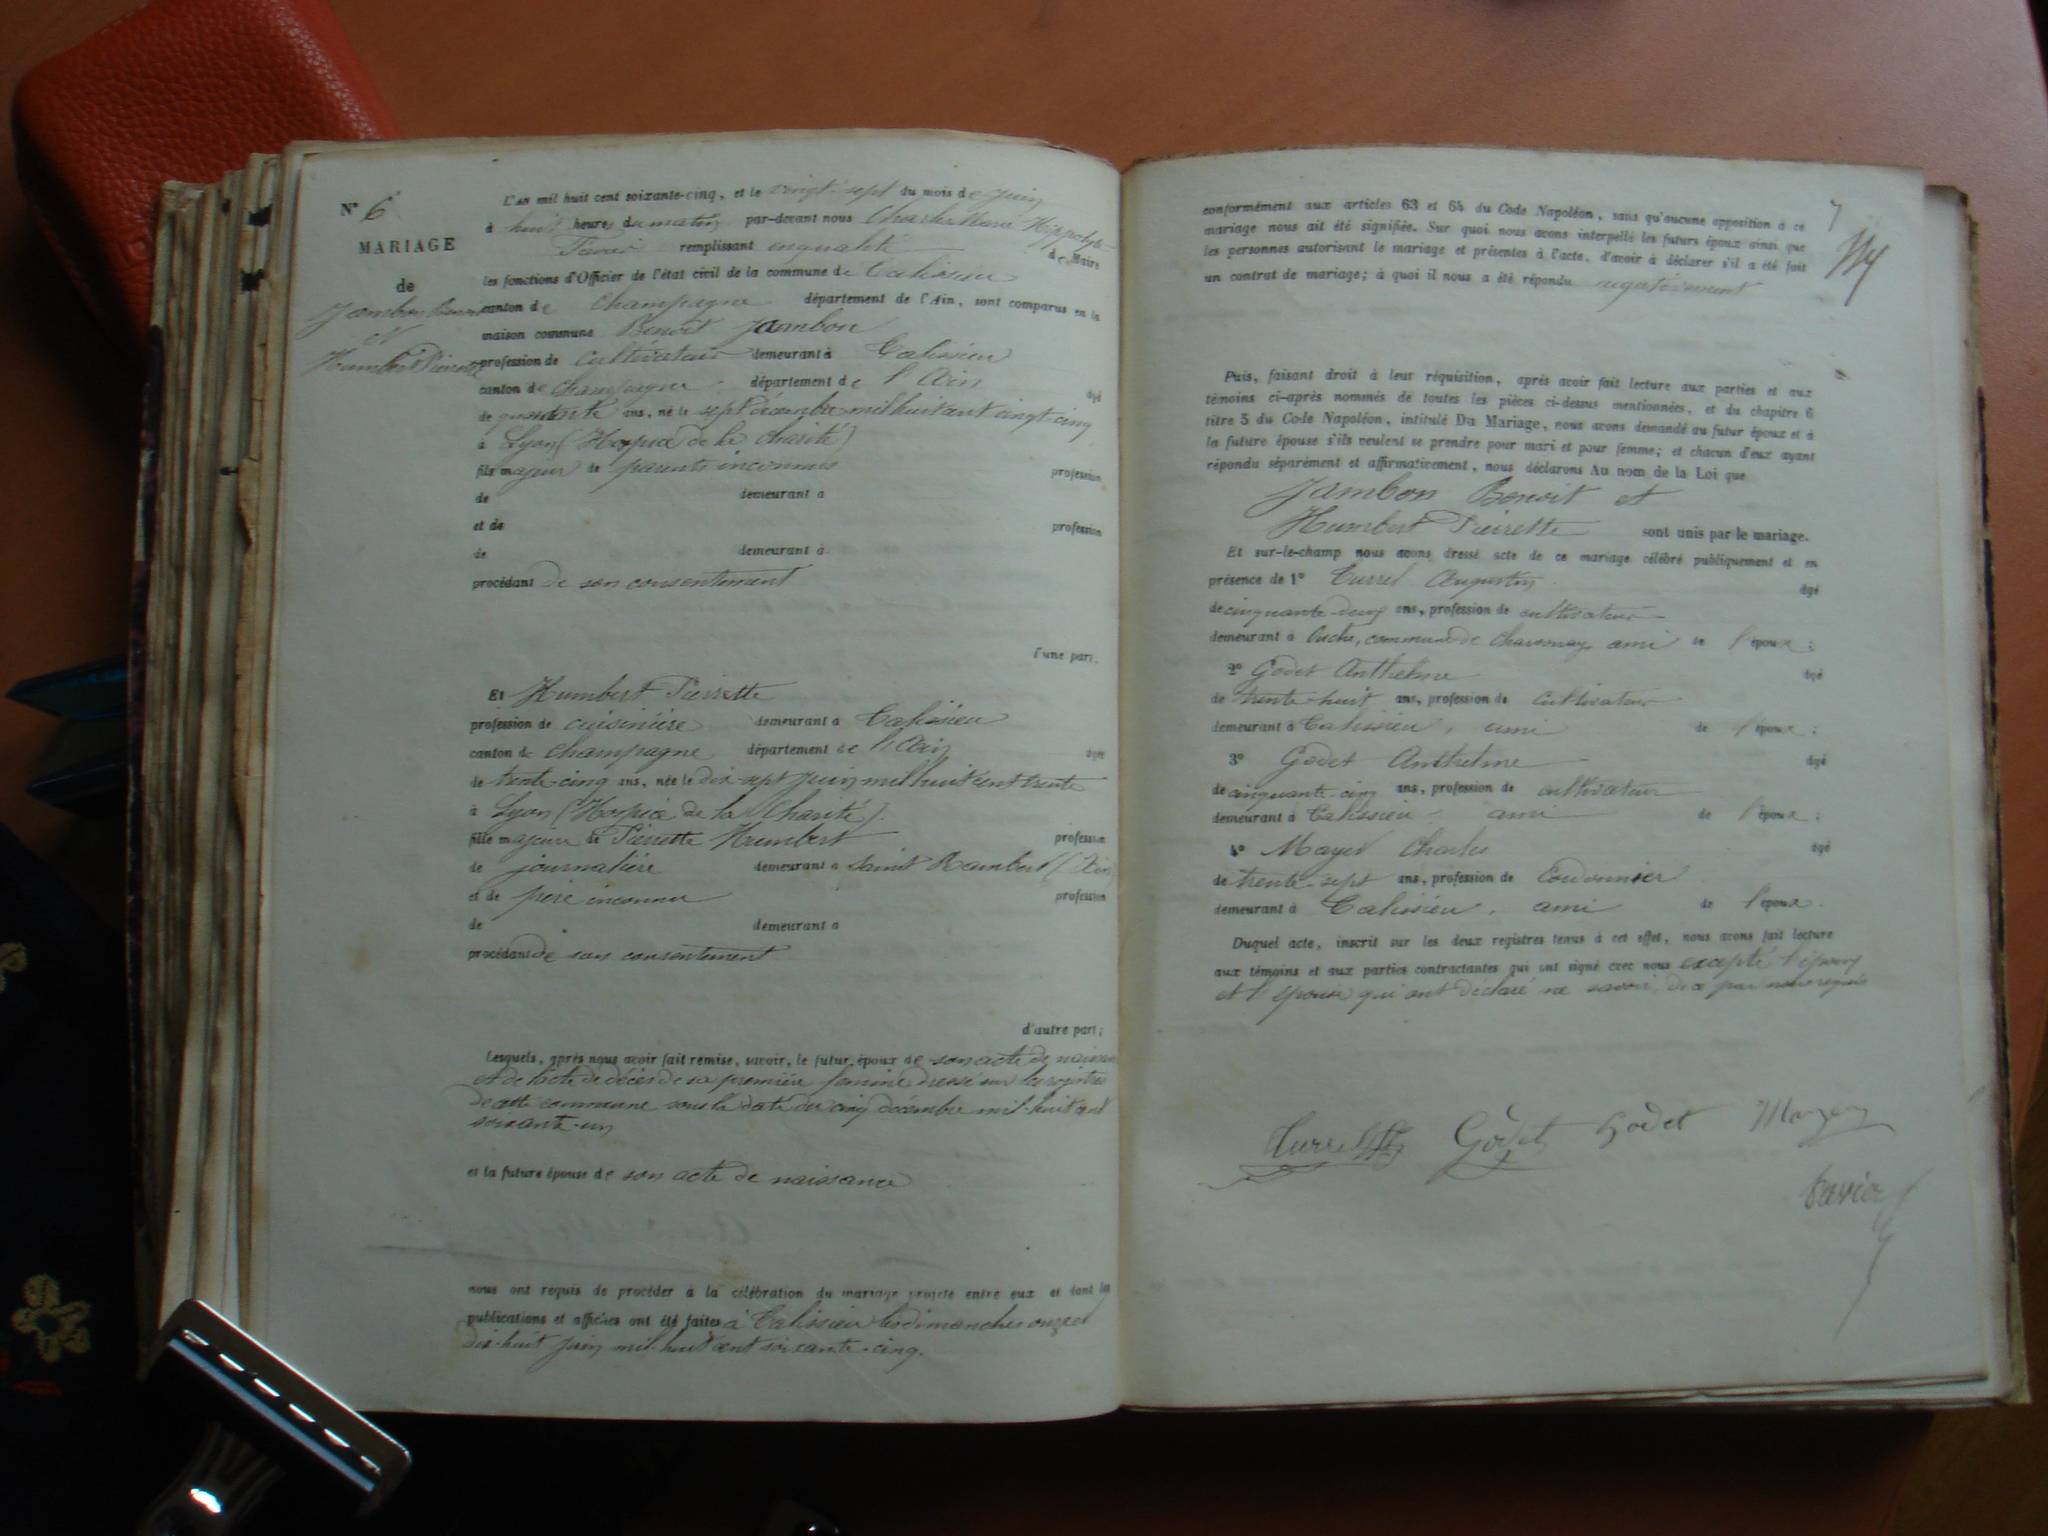 N° 6
MARIAGE
de
Jambon Benoit
et
Humbert Pierrette
L'an mil huit cent soixante-cinq, et le vingt-sept du mois de juin
à huit heures du matin par-devant nous Charles Marie Hippolyte
remplissant en qualité de Maire
les fonctions d'Officier de l'état civil de la commune de Talissieu
canton de Champagne département de l'Ain, sont comparus en la
maison commune Benoit Jambon
profession de cultivateur demeurant à Talissieu
canton de Champagne département de l'Ain âgé
de quarante ans, né le sept décembre mil huit cent vingt-cinq
à Lyon (Hospice de la Charité)
fils majeur de parents inconnus profession
de demeurant à
et de profession
de demeurant à
procédant de son consentement
d'une part;
Et Humbert Pierrette
profession de cuisinière demeurant à Talissieu
canton de Champagne département de l'Ain âgée
de trente-cinq ans, née le dix-sept juin mil huit cent trente
à Lyon (Hospice de la Charité).
fille majeure de Pierrette Humbert profession
de journalière demeurant à Saint Rambert (Ain)
et de père inconnu profession
de demeurant à
procédant de son consentement
d'autre part;
Lesquels, après nous avoir fait remise, savoir, le futur époux de son acte de naissance
et de l'acte de décès de sa première femme dressé sur les registres
de cette commune sous la date du cinq décembre mil-huit cent
soixante-un
et la future épouse de son acte de naissance
nous ont requis de procéder à la célébration du mariage projeté entre eux et dont les
publications et affiches ont été faites à Talissieu les dimanches onze et
dix-huit juin mil huit cent soixante-cinq.
7
conformément aux articles 63 et 64 du Code Napoléon, sans qu'aucune opposition à ce
mariage nous ait été signifiée. Sur quoi nous avons interpellé les futurs époux ainsi que
les personnes autorisant le mariage et présentes à l'acte, d'avoir à déclarer s'il a été fait
un contrat de mariage; à quoi il nous a été répondu négativement
Puis, faisant droit à leur réquisition, après avoir fait lecture aux parties et aux
témoins ci-après nommés de toutes les pièces ci-dessus mentionnées, et du chapitre 6
titre 5 du Code Napoléon, intitulé Du Mariage, nous avons demandé au futur époux et à
la future épouse s'ils veulent se prendre pour mari et pour femme; et chacun d'eux ayant
répondu séparément et affirmativement, nous déclarons Au nom de la Loi que
Jambon Benoit et
Humbert Pierrette sont unis par le mariage.
Et sur-le-champ nous avons dressé acte de ce mariage célébré publiquement et en
présence de 1° Turrel Augustin âgé
de cinquante-deux ans, profession de cultivateur
demeurant à commune de ami de l'époux;
2° Godet Anthelme âgé
de trente-huit ans, profession de cultivateur
demeurant à Talissieu, ami de l'époux;
3° Godet Anthelme âgé
de cinquante-cinq ans, profession de cultivateur
demeurant à Talissieu, ami de l'époux;
4° Mayet Charles âgé
de trente-sept ans, profession de Cordonnier
demeurant à Talissieu, ami de l'époux.
Duquel acte, inscrit sur les deux registres tenus à cet effet, nous avons fait lecture
aux témoins et aux parties contractantes qui ont signé avec nous excepté l'époux
et l'épouse qui ont déclaré ne savoir, de ce par nous requis
Turrel Godet Godet